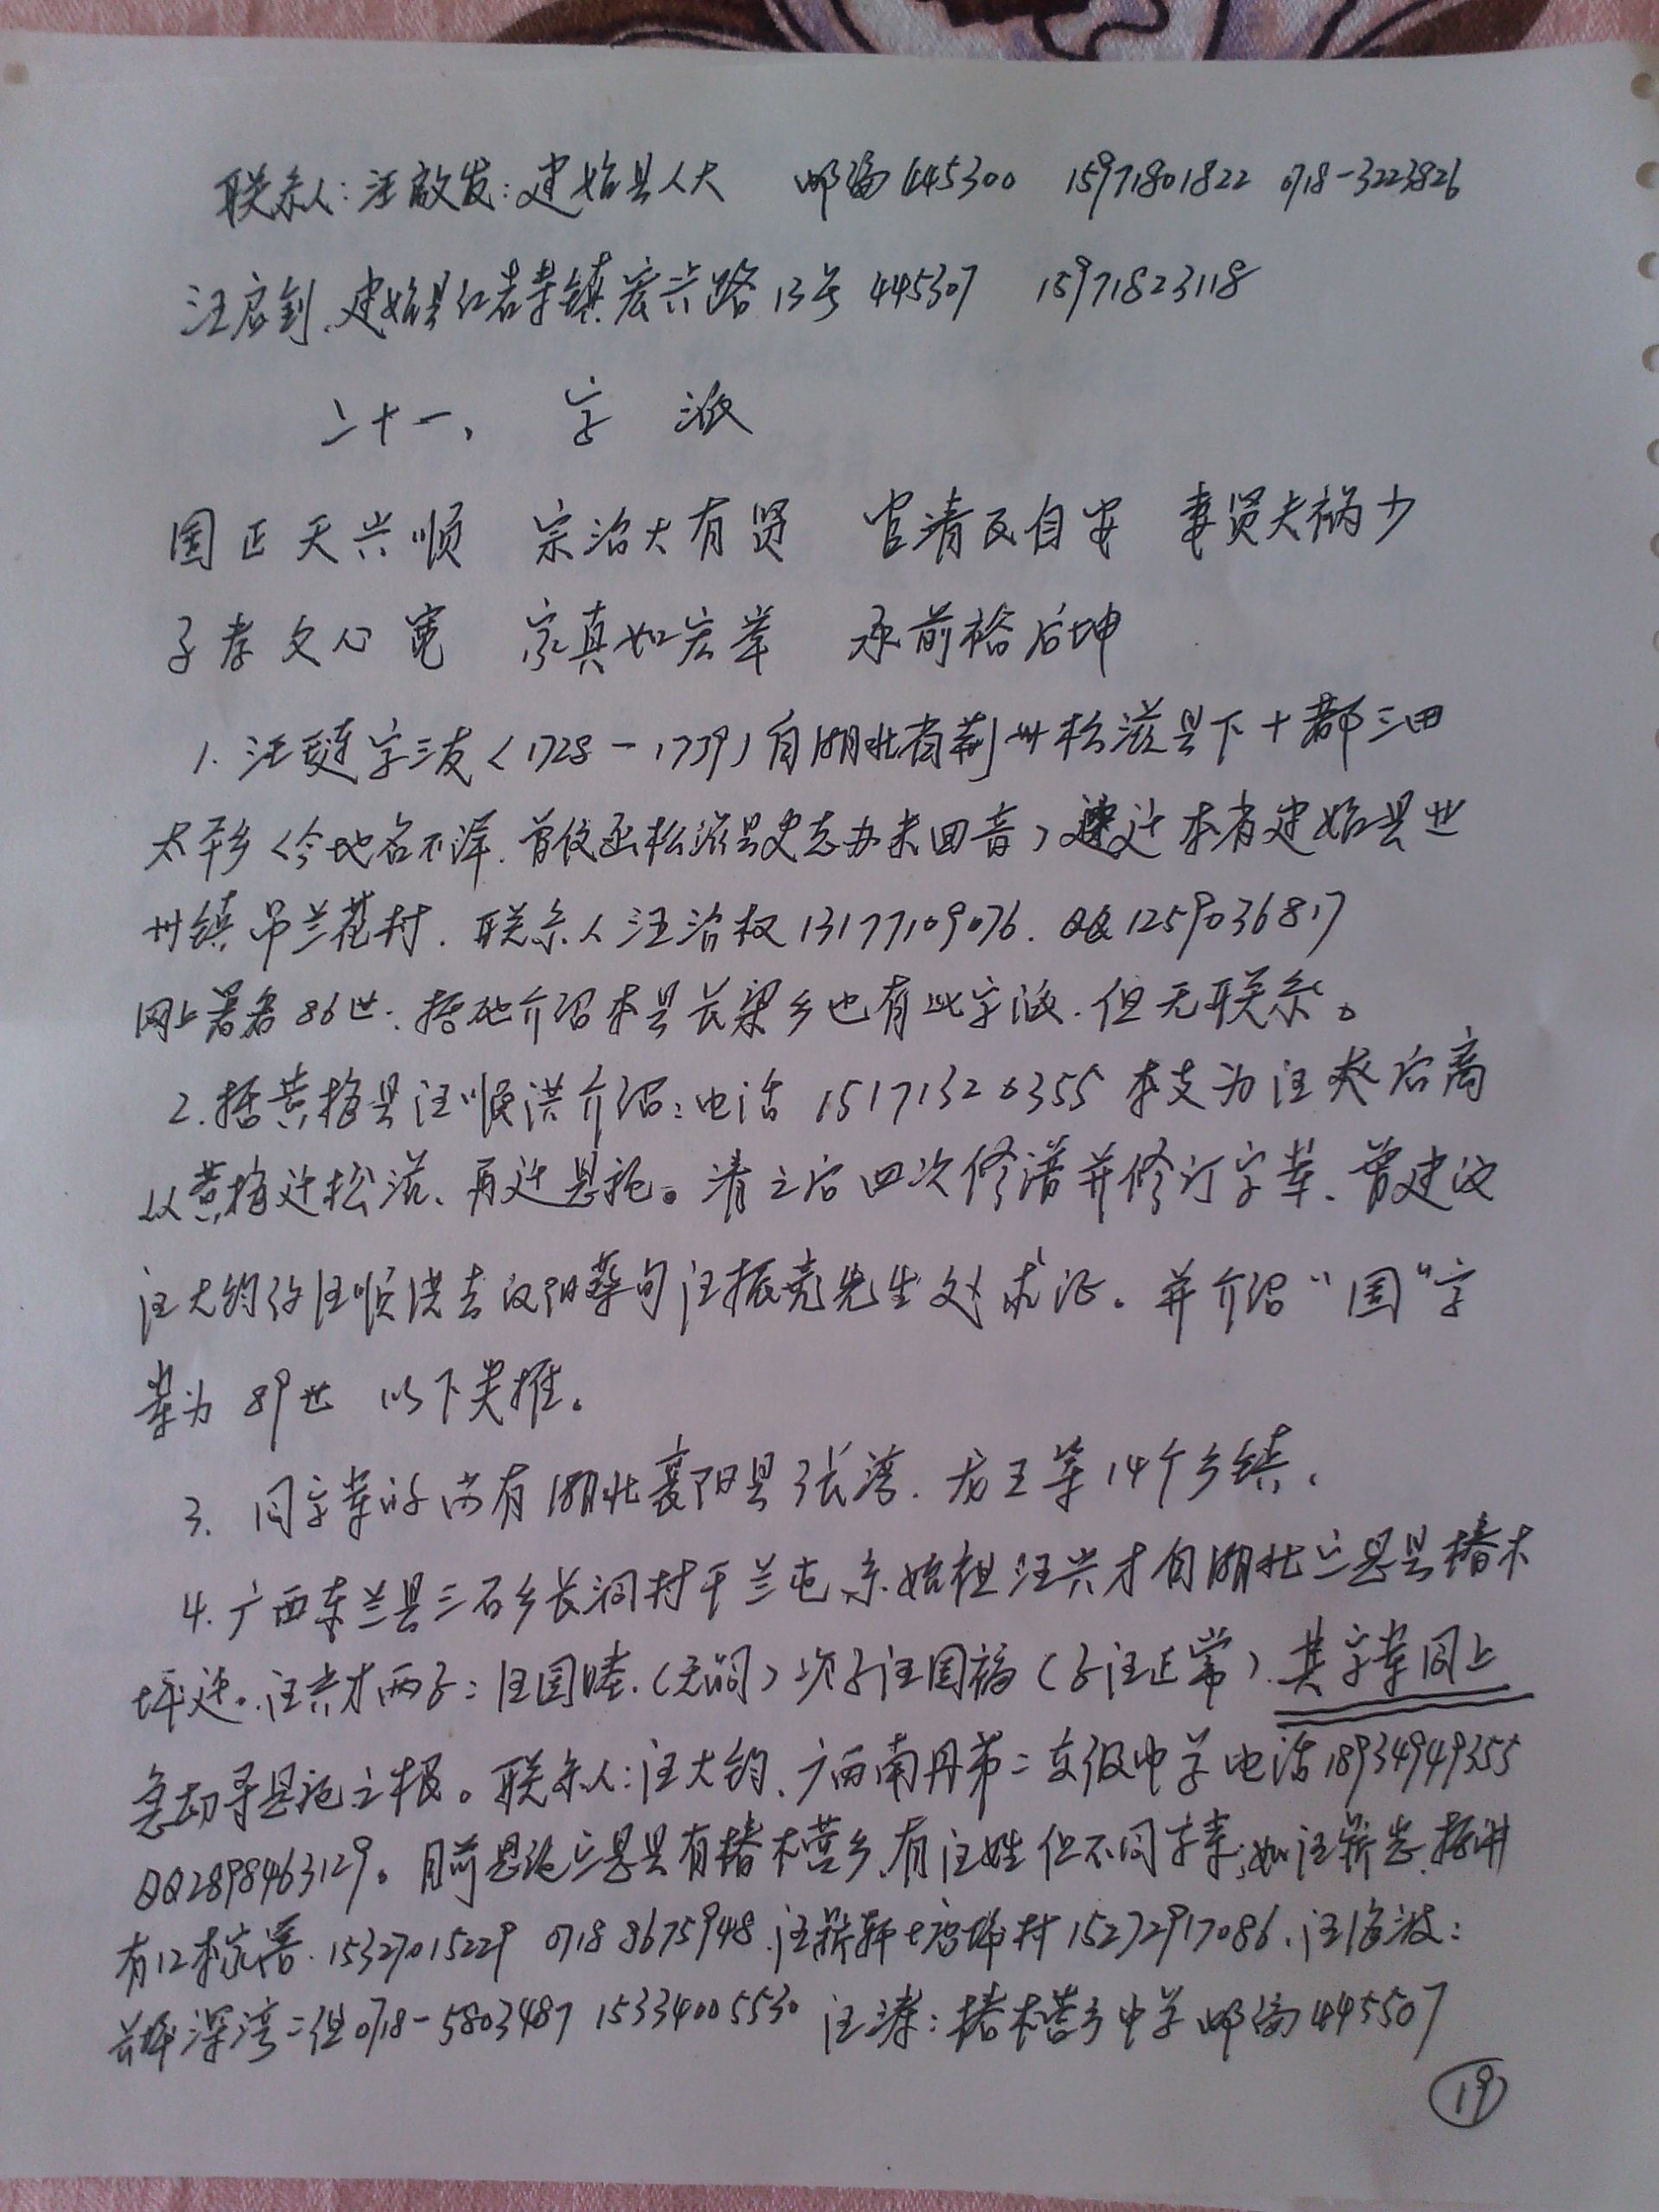 联系人:汪敵发:建始县人大 邮编445300 15971801822 0718-3223826
汪启钊、建始县红岩寺镇宏兴路13号 445307 15971823118
二十一、 字 派
国正天兴顺 宗治大有贤 官清民自安 妻贤夫祸少
子孝父心宽 家真如宏举 承前裕后坤
1.汪琏字三友<1728-1739)自湖北省荆州松滋县下十都三田
太平乡<今地名不详.曾信函松滋县史志办未回音)迁本省建始县业
州镇吊兰花村.联系人汪治权13177109076.QQ1259036817
网上署名86世.据他介绍本县长梁乡也有此字派.但无联系。
2.据黄梅县汪顺洪介绍:电话15171320355本支为汪
从黄梅迁松滋、再迁恩施。清之后四次修谱并修订字辈、曾建议
汪大钧约汪顺洪去汉阳蔡甸汪振亮先生处求证。并介绍"国"字
辈为89世 以下类推。
3.同字辈的尚有湖北襄阳县张湾.龙王等14个乡镇.
4.广西东兰县三石乡长洞村干兰屯系始祖汪兴才自湖北宣恩县椿木
坪迁.汪兴才两子:汪国 次子汪国福(子汪正常).其字辈同上
急切寻恩施之根。联系人:汪大钧、广西南丹第二高级中学电话18934949355
QQ2898463129。目前恩施宣恩县有椿木营乡.有汪姓但不同字辈;如汪 据讲
有12本 15327015229 0718 8675948 汪 村15272917086.汪海波:
深湾二组0718-5803487 15334005530 汪涛:椿木营乡中学邮编445507
19